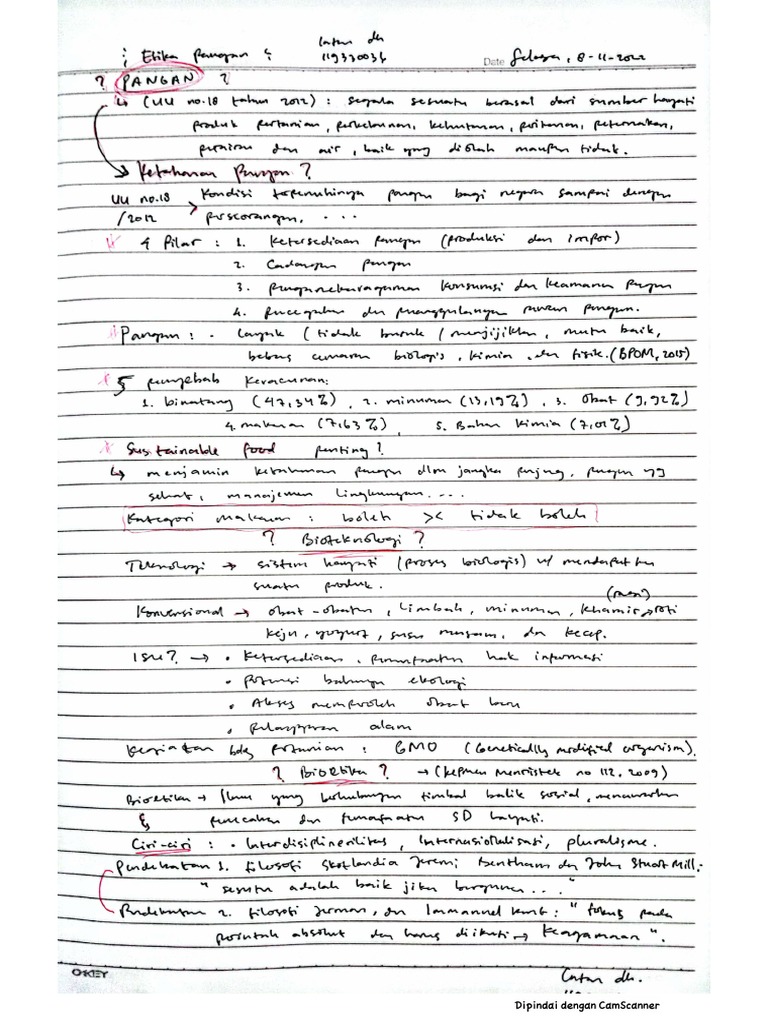 ; Etika Pangan :
Intan dh
119330034
Date Selasa, 8-11-2022
? PANGAN ?
↳ (UU no.18 tahun 2012) : segala sesuatu berasal dari sumber hayati
produk pertanian, perkebunan, kehutanan, perikanan, peternakan,
perairan dan air, baik yang diolah maupun tidak.
→ Ketahanan Pangan ?
UU no.18 > Kondisi terpenuhinya pangan bagi negara sampai dengan
/2012 perseorangan, ...
4 Pilar : 1. Ketersediaan pangan (produksi dan impor)
2. Cadangan pangan
3. penganekaragaman konsumsi dan keamanan pangan
4. pencegahan dan penanggulangan rawan pangan.
* Pangan : - Layak (tidak busuk / menjijikan, mutu baik,
bebas cemaran biologis, kimia, dan fisik. (BPOM, 2015)
* 5 penyebab keracunan:
1. binatang (47,34%), 2. minuman (13,19%), 3. Obat (9,92%)
4. makanan (7,63%), 5. Bahan kimia (7,01%)
* Sustainable food penting ?
↳ menjamin ketahanan pangan dlm jangka panjang, pangan yg
sehat, manajemen lingkungan....
Kategori makanan : boleh >< tidak boleh
? Bioteknologi ?
Teknologi → sistem hayati (proses biologis) u/ mendapatkan
suatu produk.
Konvensional → obat-obatan, limbah, minuman, khamir → roti
(ragi)
keju, yogurt, susu masam, dan kecap.
Isu? → • Ketersediaan, pemanfaatan hak informasi
• Potensi bahaya ekologi
• Akses memperoleh obat baru
• Pelanggaran alam
Kegiatan bdg pertanian : GMO (Genetically modified organism).
? Bioetika ? → (Kepmen Menristek no 112, 2009)
Bioetika → Ilmu yang berhubungan timbal balik sosial, menawarkan
pemecahan dan pemanfaatan SD hayati.
Ciri-ciri : • Interdisiplineritas, Internasionalisasi, pluralisme.
Pendekatan 1. Filosofi Skotlandia Jeremi Bentham dan John Stuart Mill:
"sesuatu adalah baik jika berguna..."
Pendekatan 2. Filosofi Jerman, dr Immannuel Kant: "fokus pada
perintah absolut dan harus diikuti → Keagamaan".
OKEY
Intan dh.
Dipindai dengan CamScanner